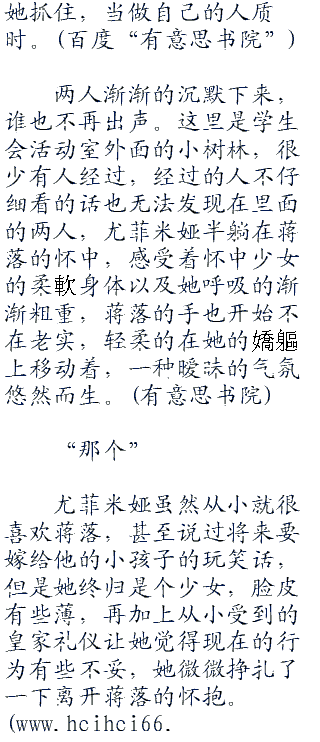 她抓住，当做自己的人质
时。(百度“有意思书院”)
两人渐渐的沉默下来，
谁也不再出声。这里是学生
会活动室外面的小树林，很
少有人经过，经过的人不仔
细看的话也无法发现在里面
的两人，尤菲米娅半躺在蒋
落的怀中，感受着怀中少女
的柔軟身体以及她呼吸的渐
渐粗重，蒋落的手也开始不
在老实，轻柔的在她的嬌軀
上移动着，一种暧昧的气氛
悠然而生。(有意思书院)
“那个”
尤菲米娅虽然从小就很
喜欢蒋落，甚至说过将来要
嫁给他的小孩子的玩笑话，
但是她终归是个少女，脸皮
有些薄，再加上从小受到的
皇家礼仪让她觉得现在的行
为有些不妥，她微微挣扎了
一下离开蒋落的怀抱。
(www.hcihci66.